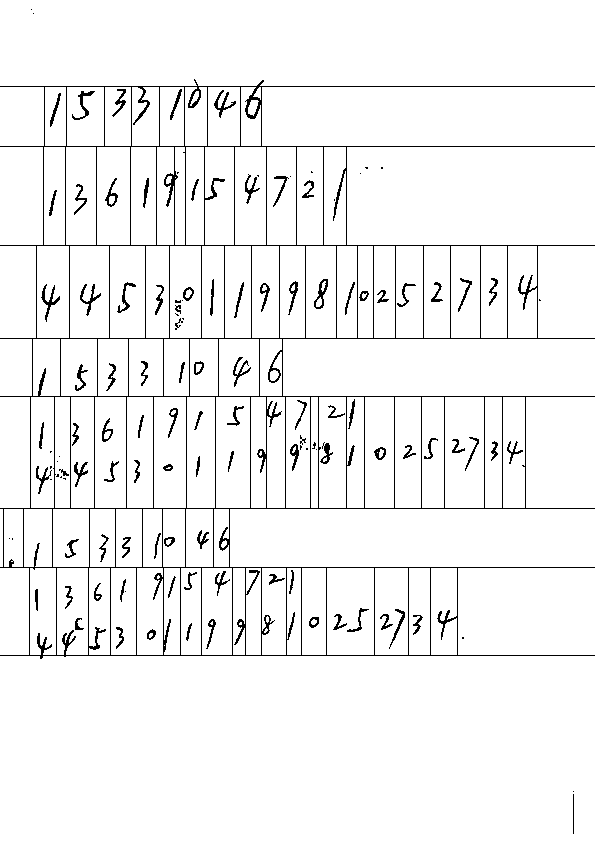 15331046
13619154721
445301199810252734.
15331046
13619154721
445301199810252734.
15331046
13619154721
445301199810252734.